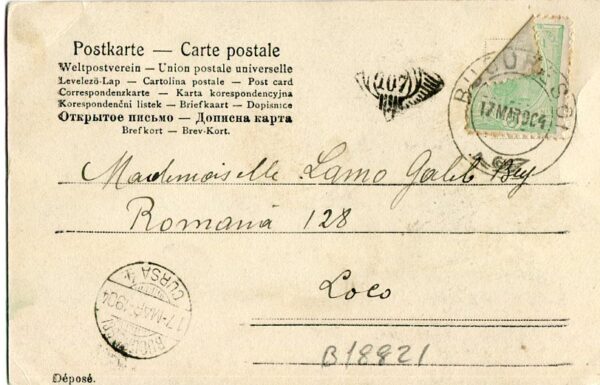 Postkarte — Carte postale
Weltpostverein — Union postale universelle
Levelező-Lap — Cartolina postale — Post card
Correspondenzkarte — Karta korespondencyjna
Korespondenční listek — Briefkaart — Dopisnice
Открытое письмо — Дописна карта
Brefkort — Brev-Kort.
107
17 MAR 904
Mademoiselle Lamo Galib Bey
Romană 128
Loco
CURSA 4
17-MAR-1904
BUCURESCI
B18821
Déposé.